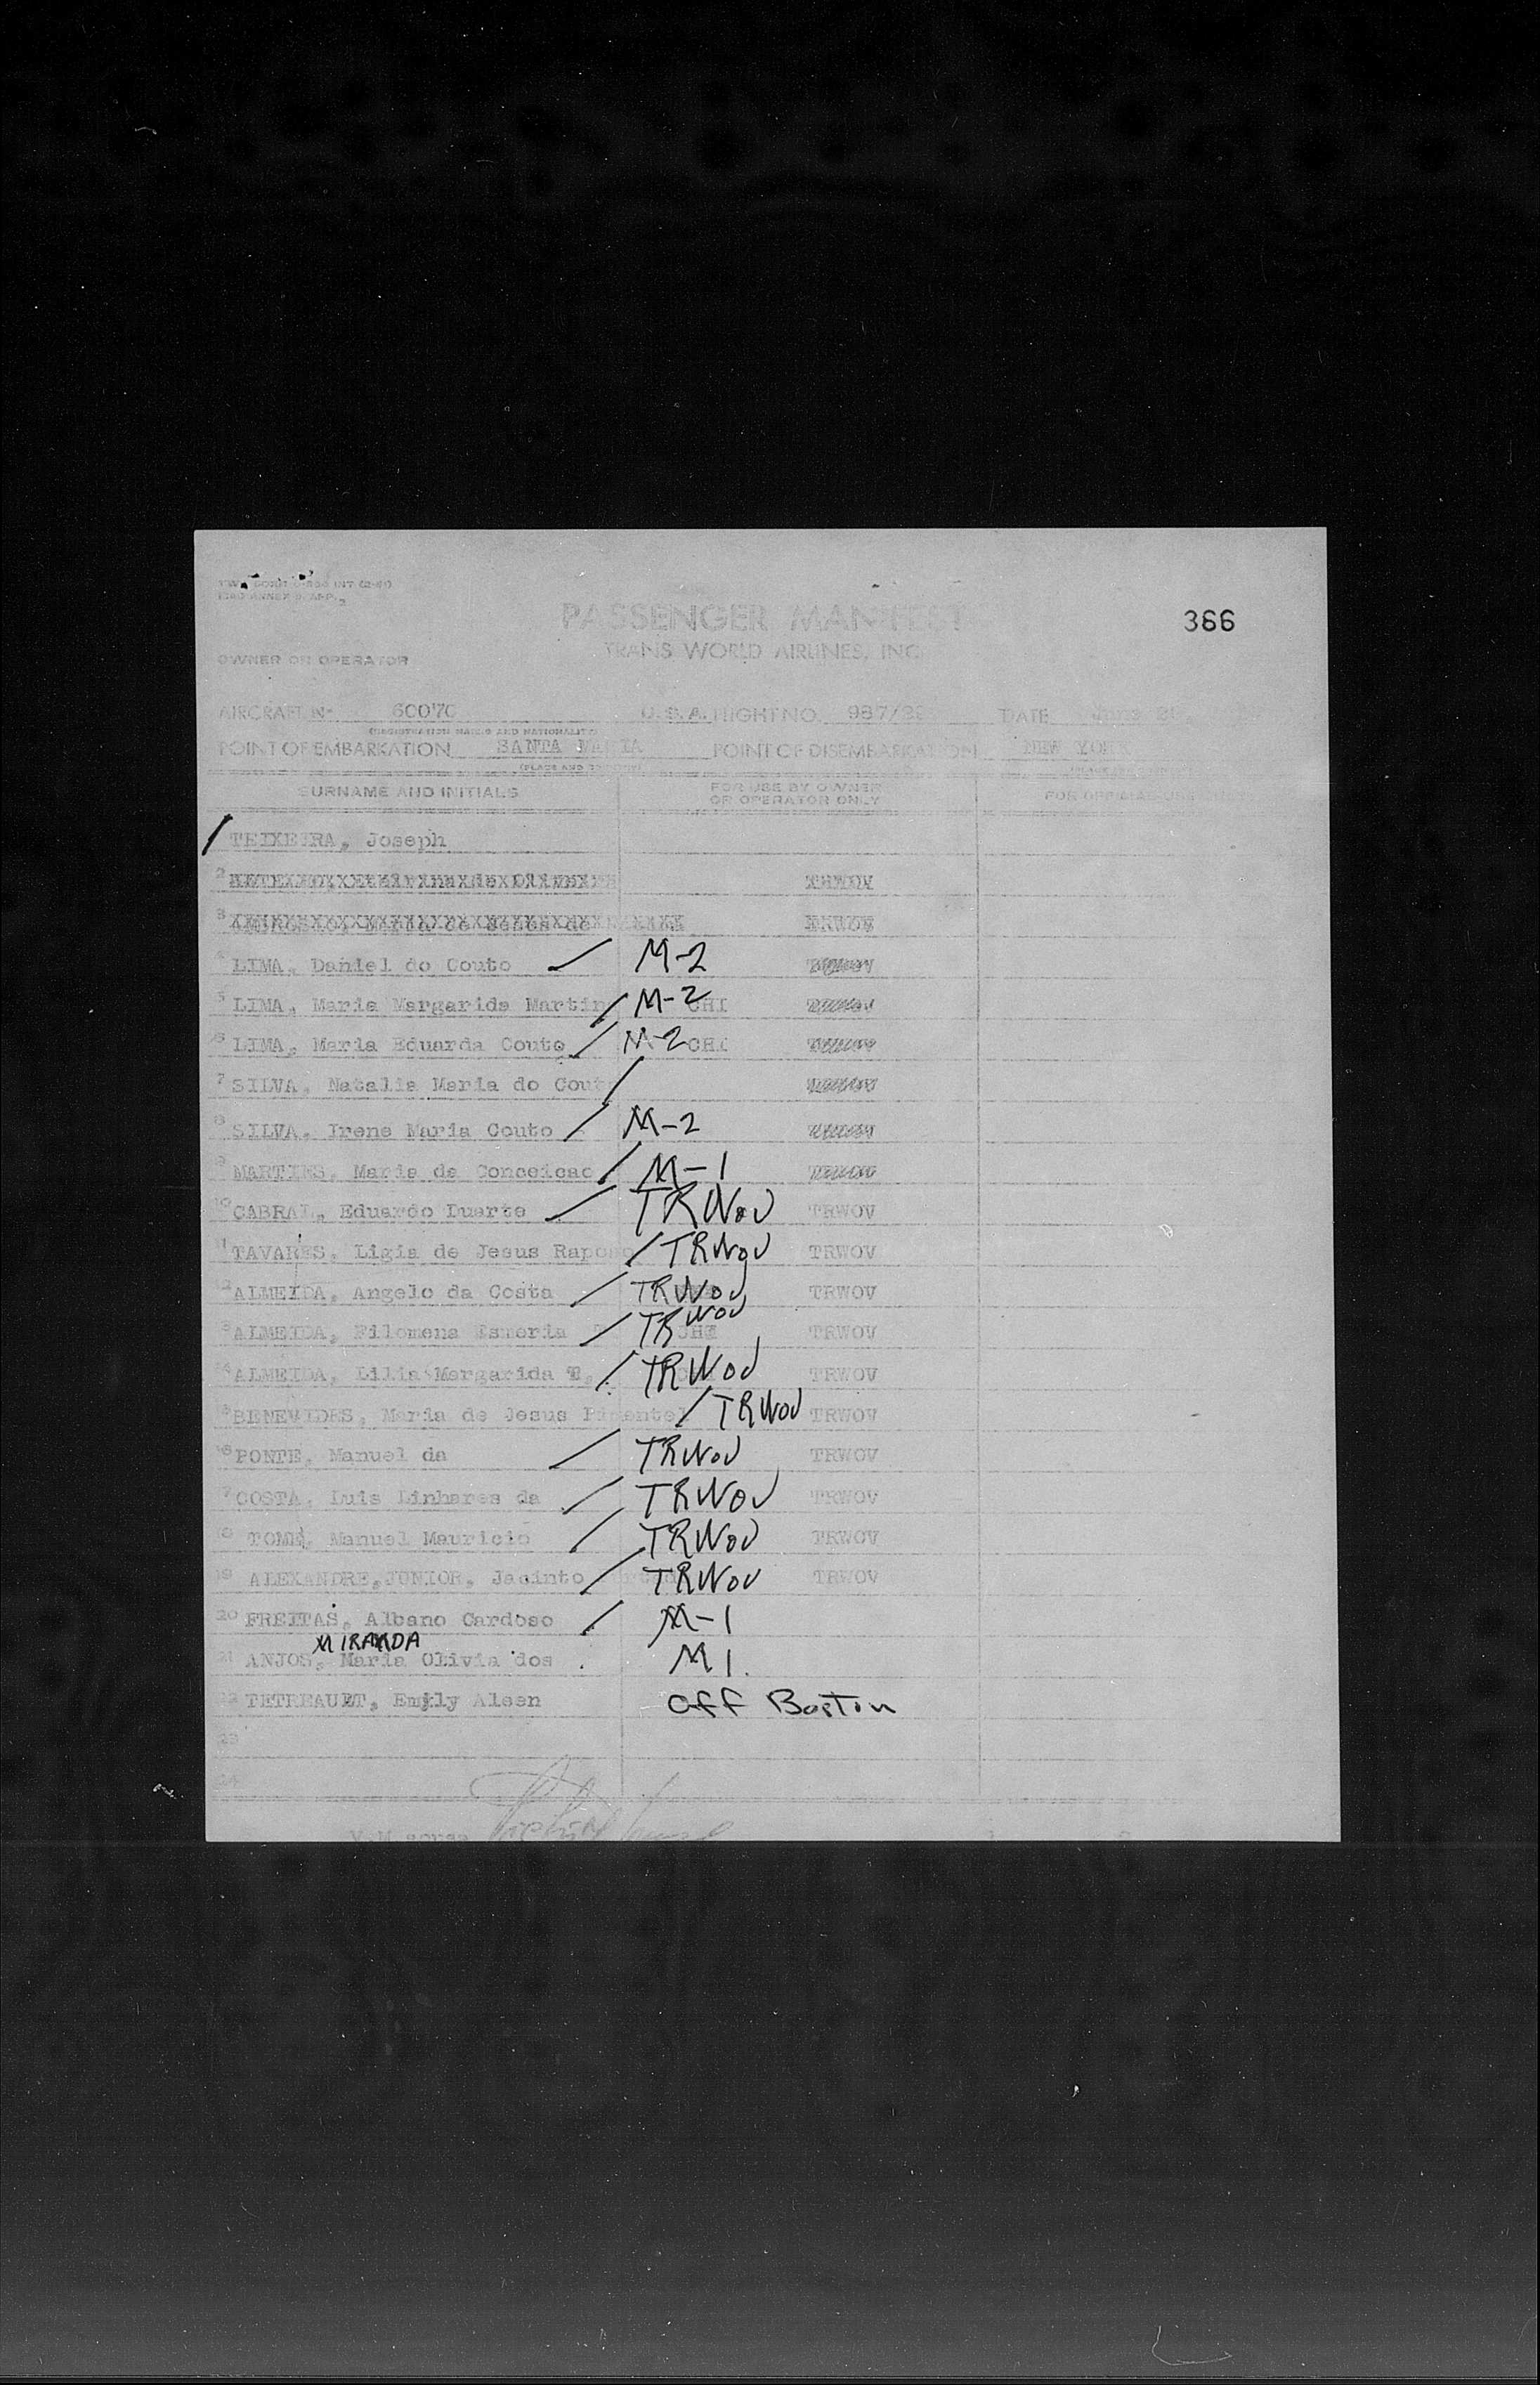 PASSENGER MANIFEST
366
TRANS WORLD AIRLINES, INC.
OWNER OR OPERATOR
AIRCRAFT No 60070 U. S. A. FLIGHT NO. DATE
POINT OF EMBARKATION SANTA MARIA POINT OF DISEMBARKATION NEW YORK
SURNAME AND INITIALS FOR USE BY OWNER
OR OPERATOR ONLY
TEIXEIRA, Joseph
2 TRWOV
3 TRWOV
LIMA, Daniel do Couto M-2
5 LIMA, Maria Margarida Martin M-2 CHI
6 LIMA, Maria Eduarda Couto M-2 CHI
7 SILVA, Natalia Maria do Cout
8 SILVA, Irene Maria Couto M-2
9 MARTINS, Maria da Conceicao M-1
10 CABRAL, Eduardo Duarte TRWOV TRWOV
11 TAVARES, Ligia de Jesus Raposo TRWOV TRWOV
12 ALMEIDA, Angelo da Costa TRWOV TRWOV
13 ALMEIDA, Filomena Esmeria TRWOV CHI TRWOV
14 ALMEIDA, Lilia Margarida T. TRWOV TRWOV
15 BENEVIDES, Maria de Jesus Pimentel TRWOV TRWOV
16 PONTE, Manuel da TRWOV TRWOV
17 COSTA, Luis Linhares da TRWOV TRWOV
18 TOME, Manuel Mauricio TRWOV TRWOV
19 ALEXANDRE,JUNIOR, Jacinto TRWOV TRWOV
20 FREITAS, Albano Cardoso M-1
MIRANDA
21 ANJOS, Maria Olivia dos M1.
22 TETREAULT, Emily Aleen Off Boston
23
24